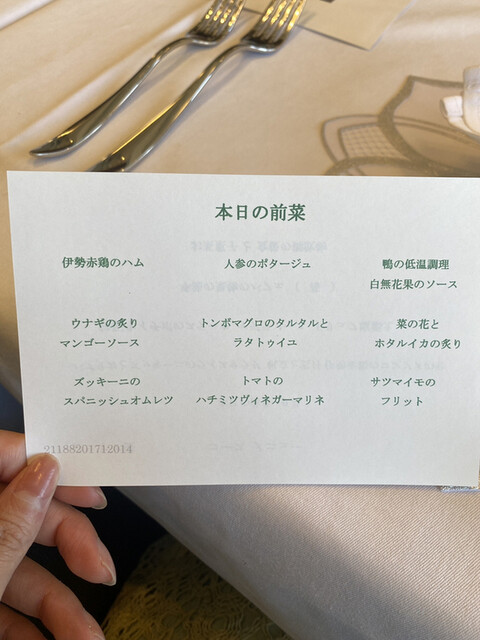 本日の前菜
伊勢赤鶏のハム
人参のポタージュ
鴨の低温調理
白無花果のソース
ウナギの炙り
マンゴーソース
トンボマグロのタルタルと
ラタトゥイユ
菜の花と
ホタルイカの炙り
ズッキーニの
スパニッシュオムレツ
トマトの
ハチミツヴィネガーマリネ
サツマイモの
フリット
21188201712014